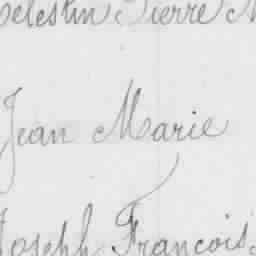 Celestin Pierre M
Jean Marie
Joseph François